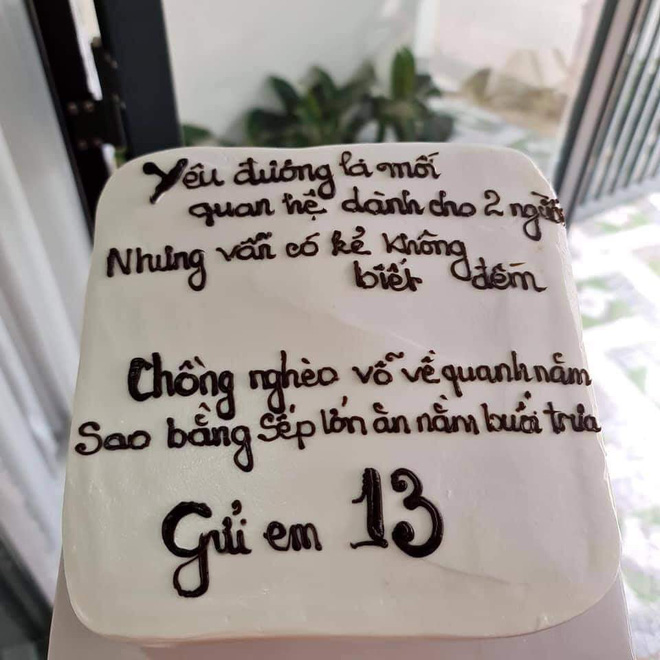 Yêu đương là mối
quan hệ dành cho 2 người
Nhưng vẫn có kẻ không
biết đếm
Chồng nghèo vỗ về quanh năm
Sao bằng sếp lớn ăn nằm buổi trưa
Gửi em 13